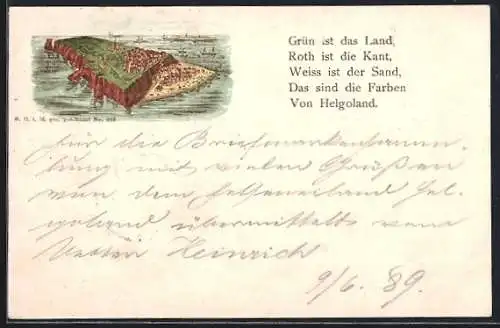 Grün ist das Land,
Roth ist die Kant,
Weiss ist der Sand,
Das sind die Farben
Von Helgoland.
für die Briefmarkensamm-
lung mit vielen Grüßen
dem Felseneiland Hel-
goland übermittelt vom
Vetter Heinrich
9/6. 89.